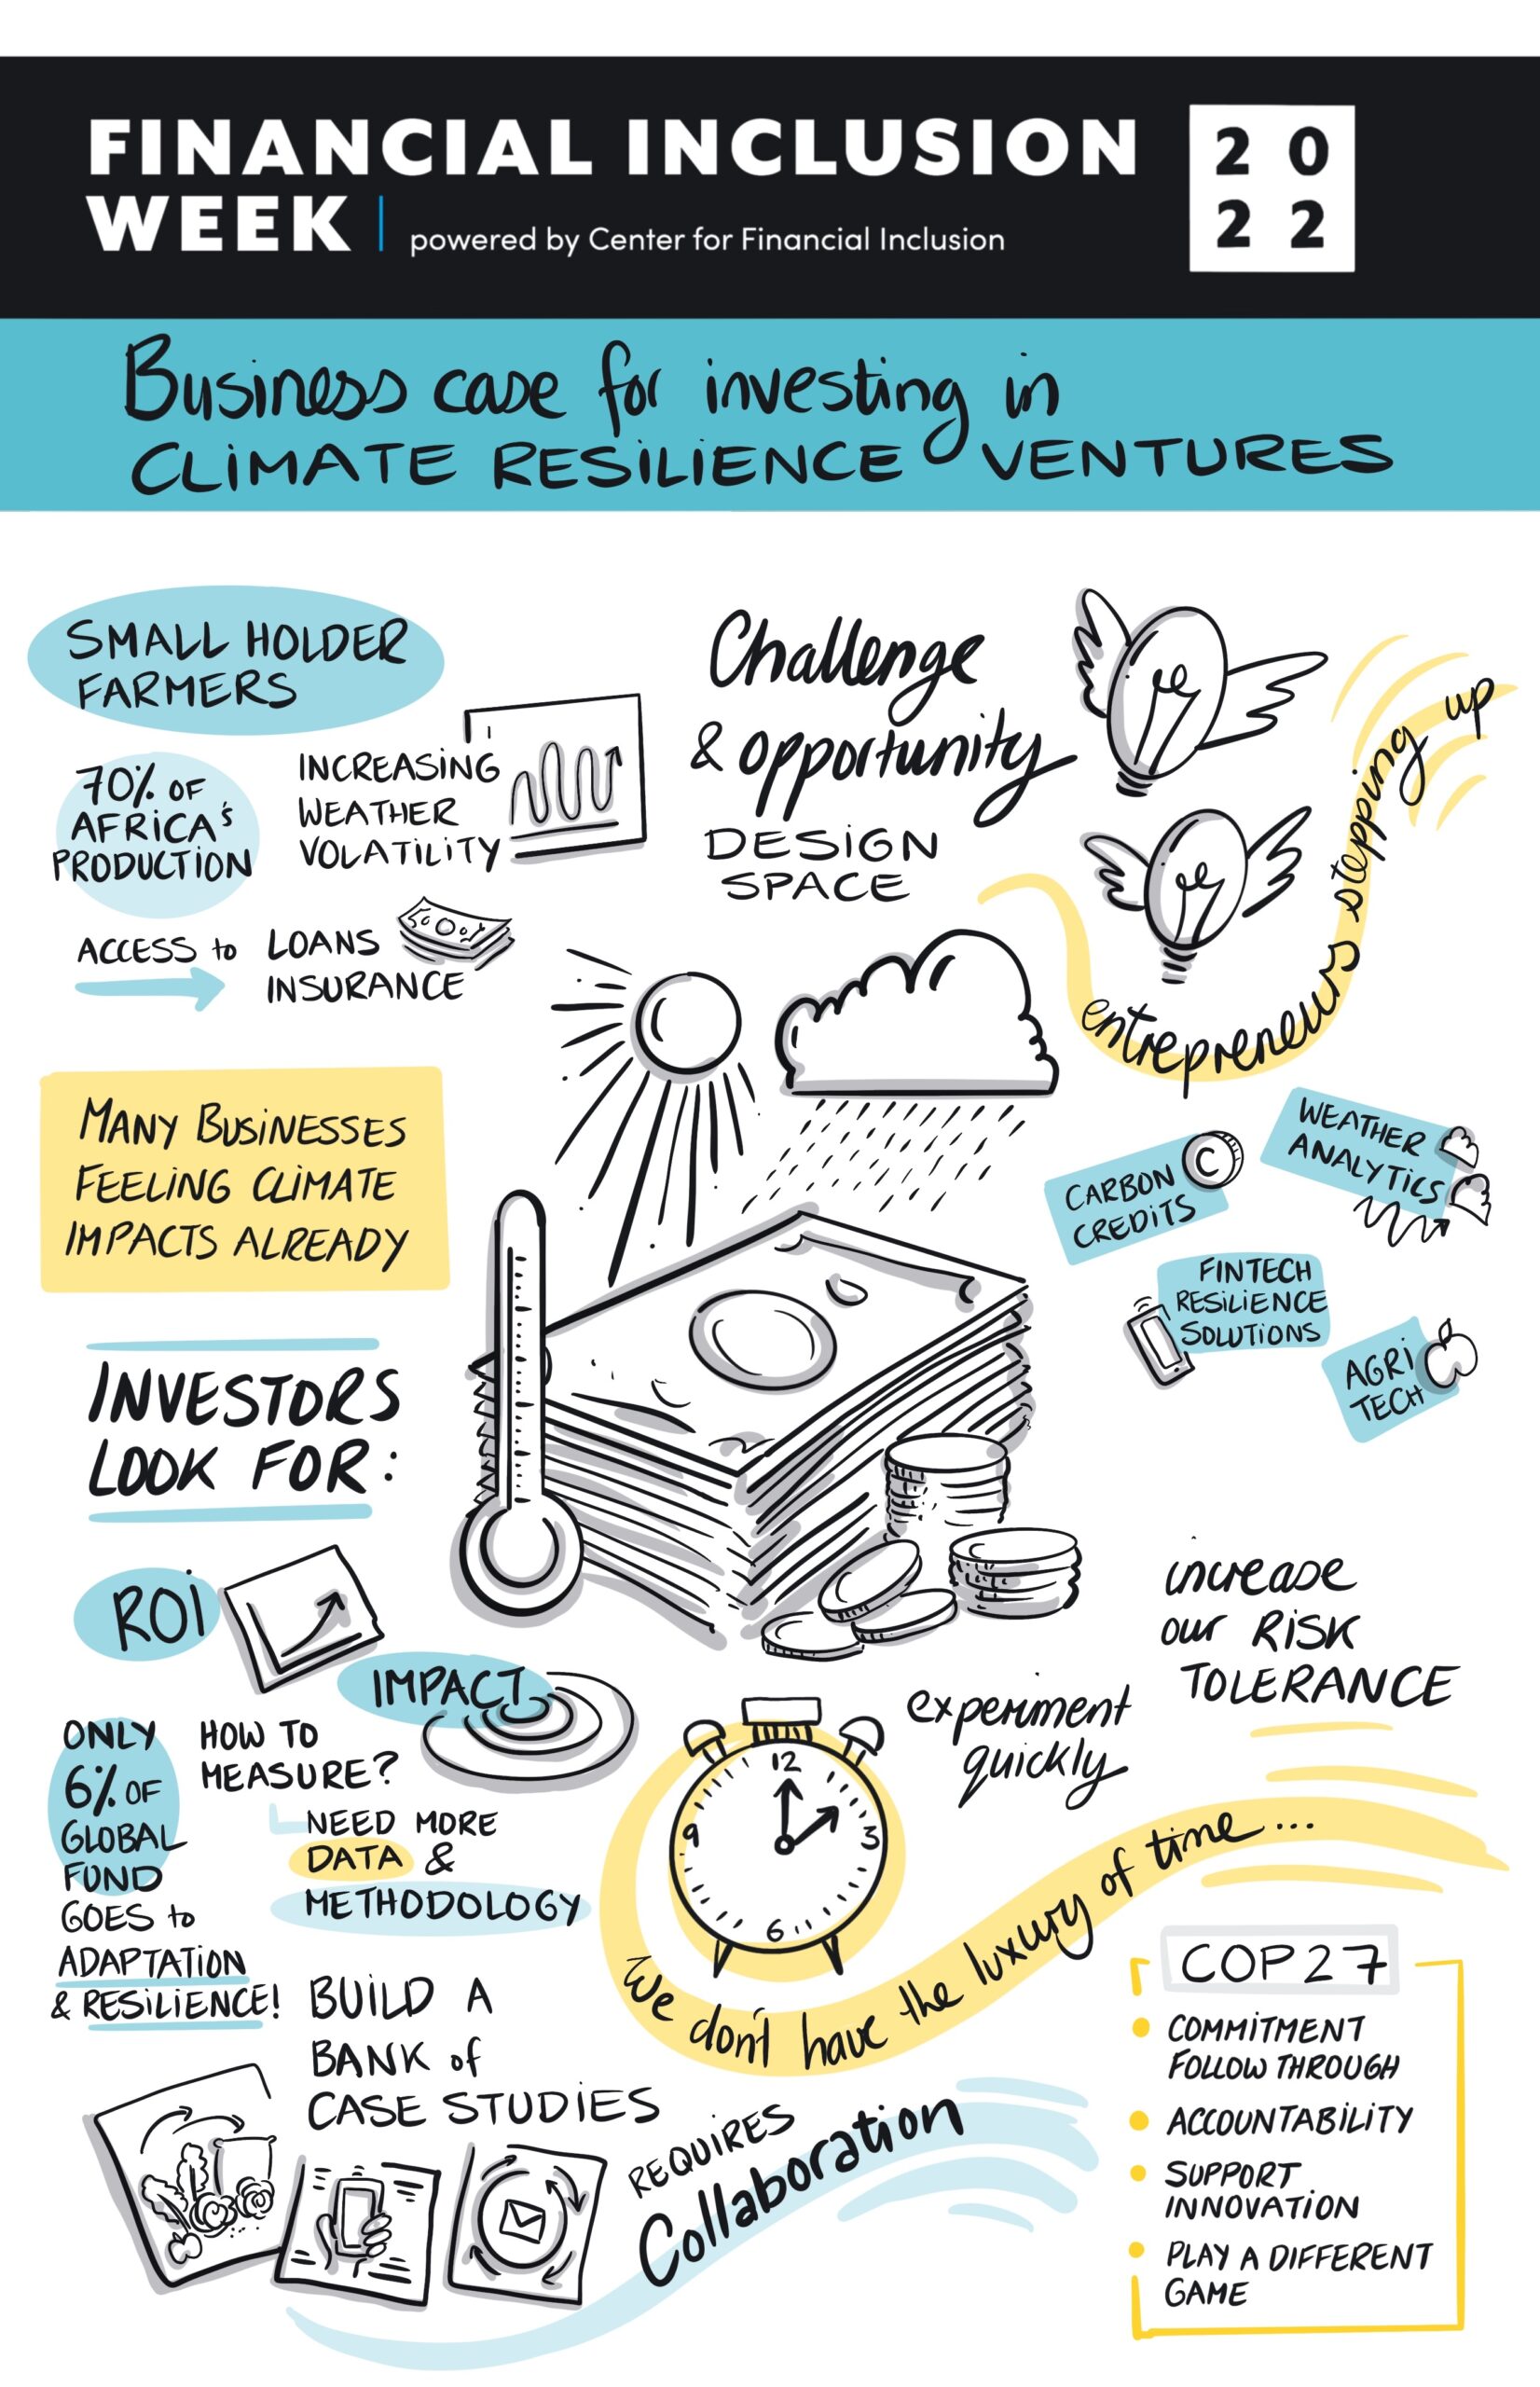 FINANCIAL INCLUSION
WEEK | powered by Center for Financial Inclusion
20
22
Business case for investing in
CLIMATE RESILIENCE VENTURES
SMALL HOLDER
FARMERS
70% OF
AFRICA'S
PRODUCTION
INCREASING
WEATHER
VOLATILITY
ACCESS to LOANS
INSURANCE
Challenge
& opportunity
DESIGN
SPACE
entrepreneurs stepping up
MANY BUSINESSES
FEELING CLIMATE
IMPACTS ALREADY
CARBON
CREDITS
C
WEATHER
ANALYTICS
FINTECH
RESILIENCE
SOLUTIONS
AGRI
TECH
INVESTORS
LOOK FOR:
ROI
IMPACT
HOW TO
MEASURE?
NEED MORE
DATA &
METHODOLOGY
ONLY
6% OF
GLOBAL
FUND
GOES to
ADAPTATION
& RESILIENCE!
increase
our RISK
TOLERANCE
experiment
quickly
12
9
3
6
We don't have the luxury of time...
BUILD A
BANK of
CASE STUDIES
REQUIRES
Collaboration
COP27
COMMITMENT
FOLLOW THROUGH
ACCOUNTABILITY
SUPPORT
INNOVATION
PLAY A DIFFERENT
GAME